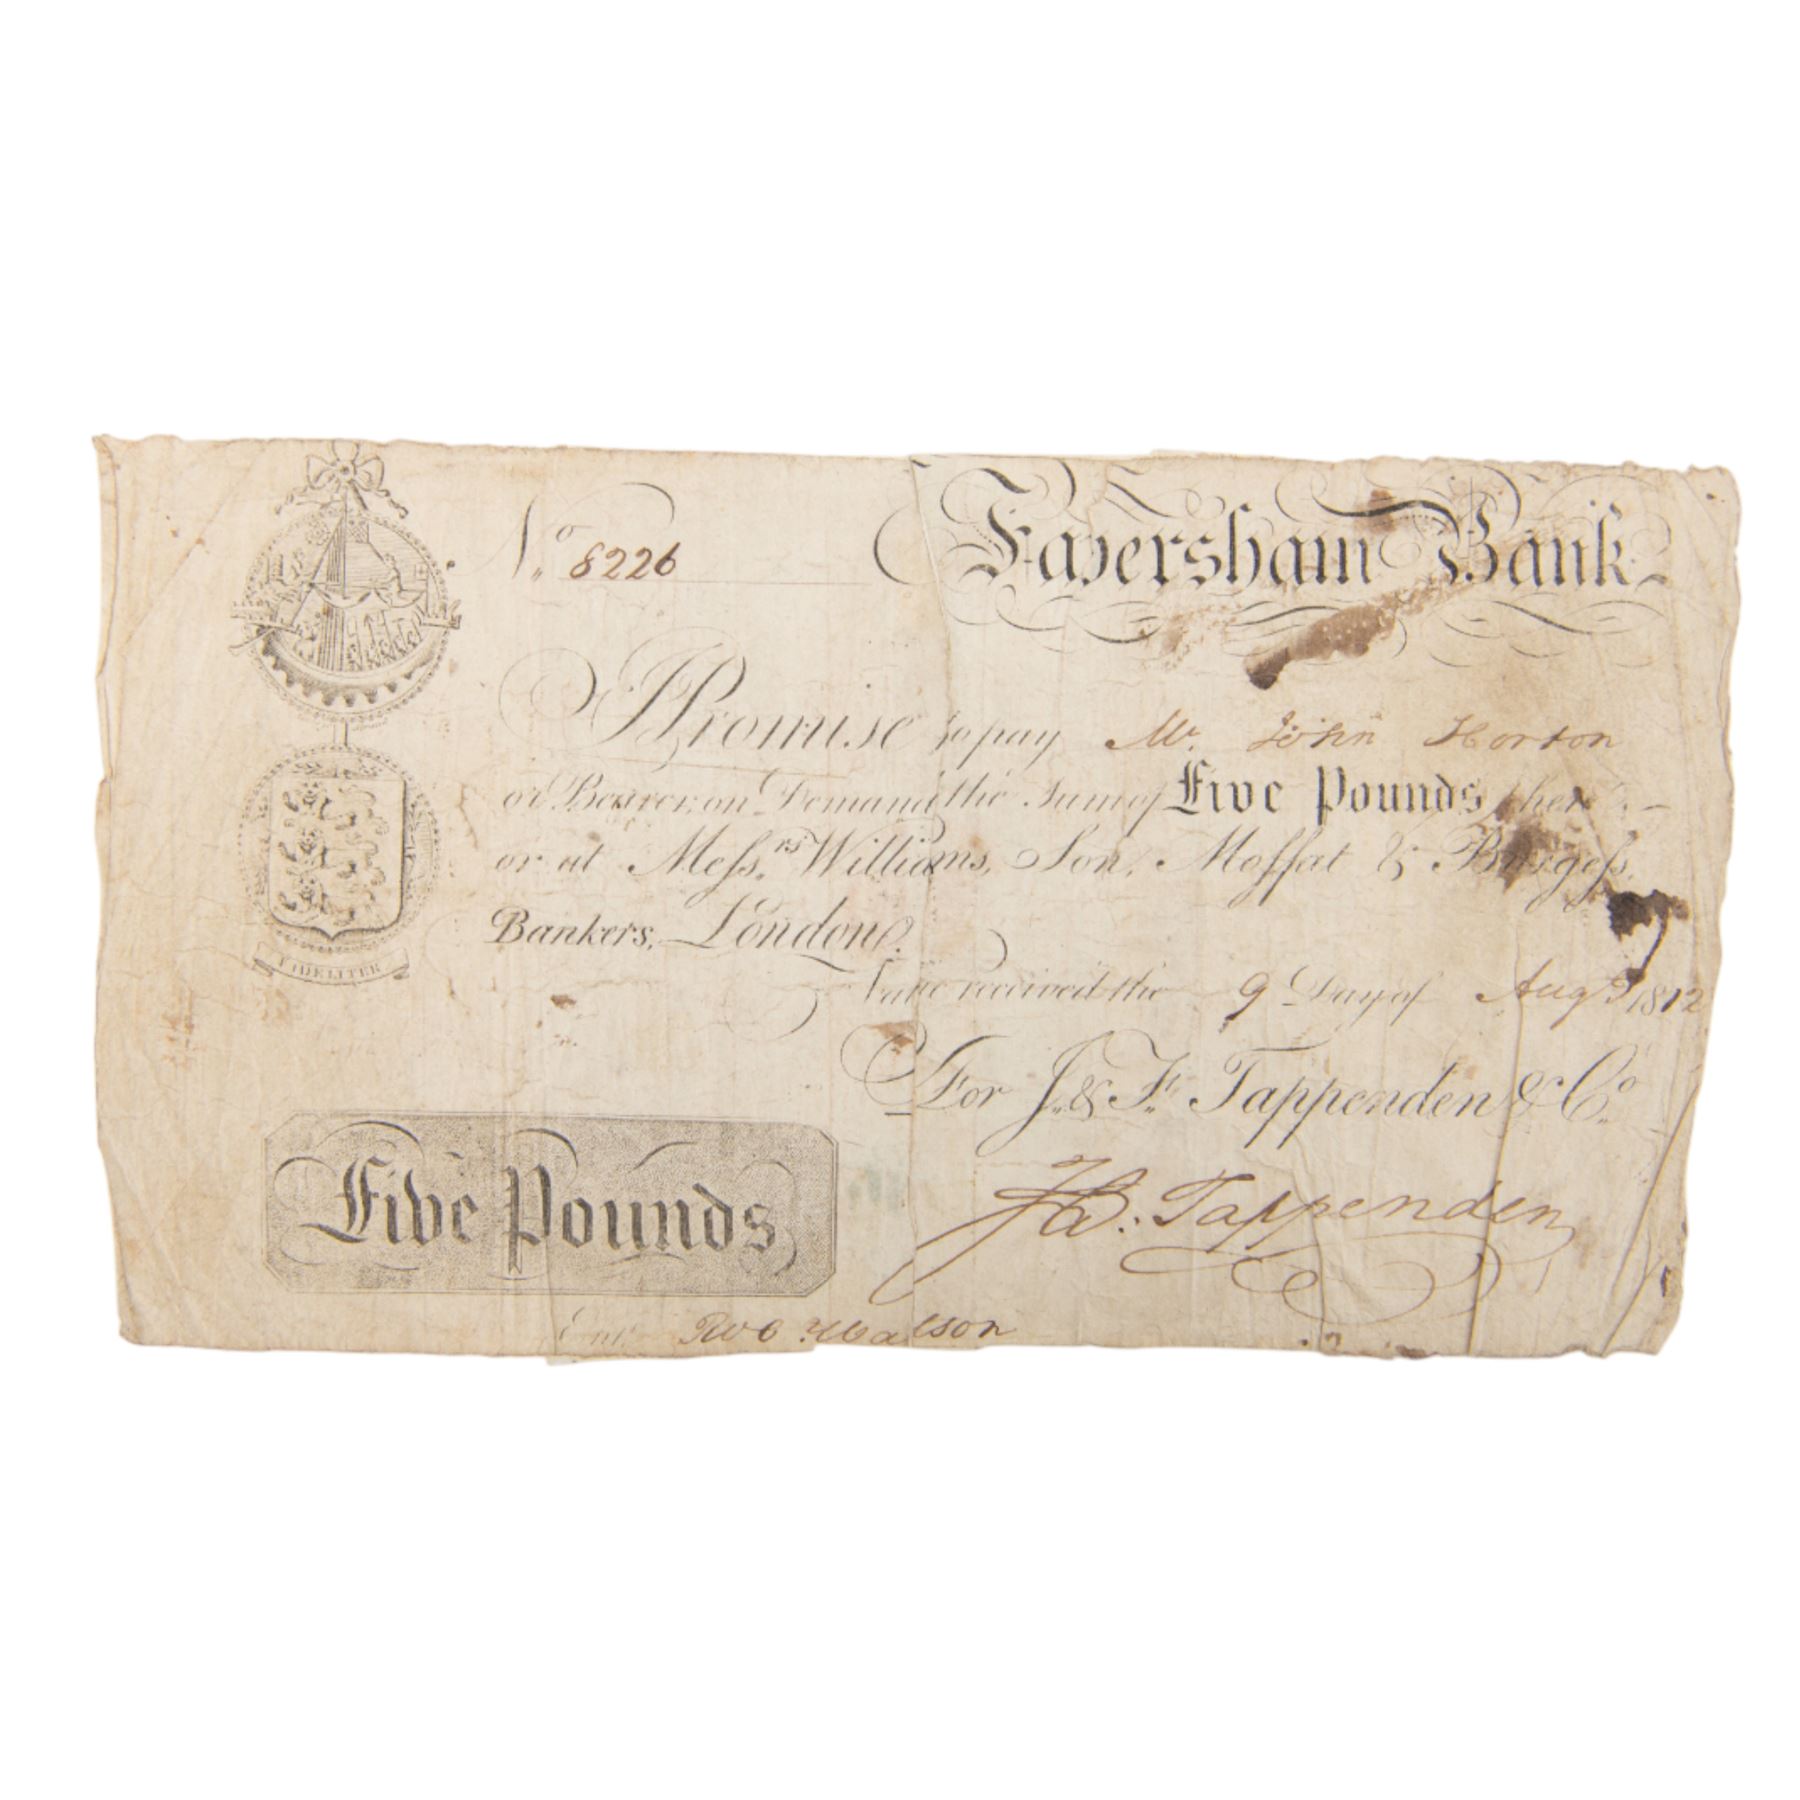 No. 8226
Faversham Bank
I Promise to pay Mr. John Horton
or Bearer, on Demand the Sum of Five Pounds, here
or at Meſs.rs Williams, Son, Moffat & Burgeſs,
Bankers, London.
Value received the 9 Day of Augt 1812
For J. & F. Tappenden & Co.
Tappenden
FIDELITER
Five Pounds
Entd.